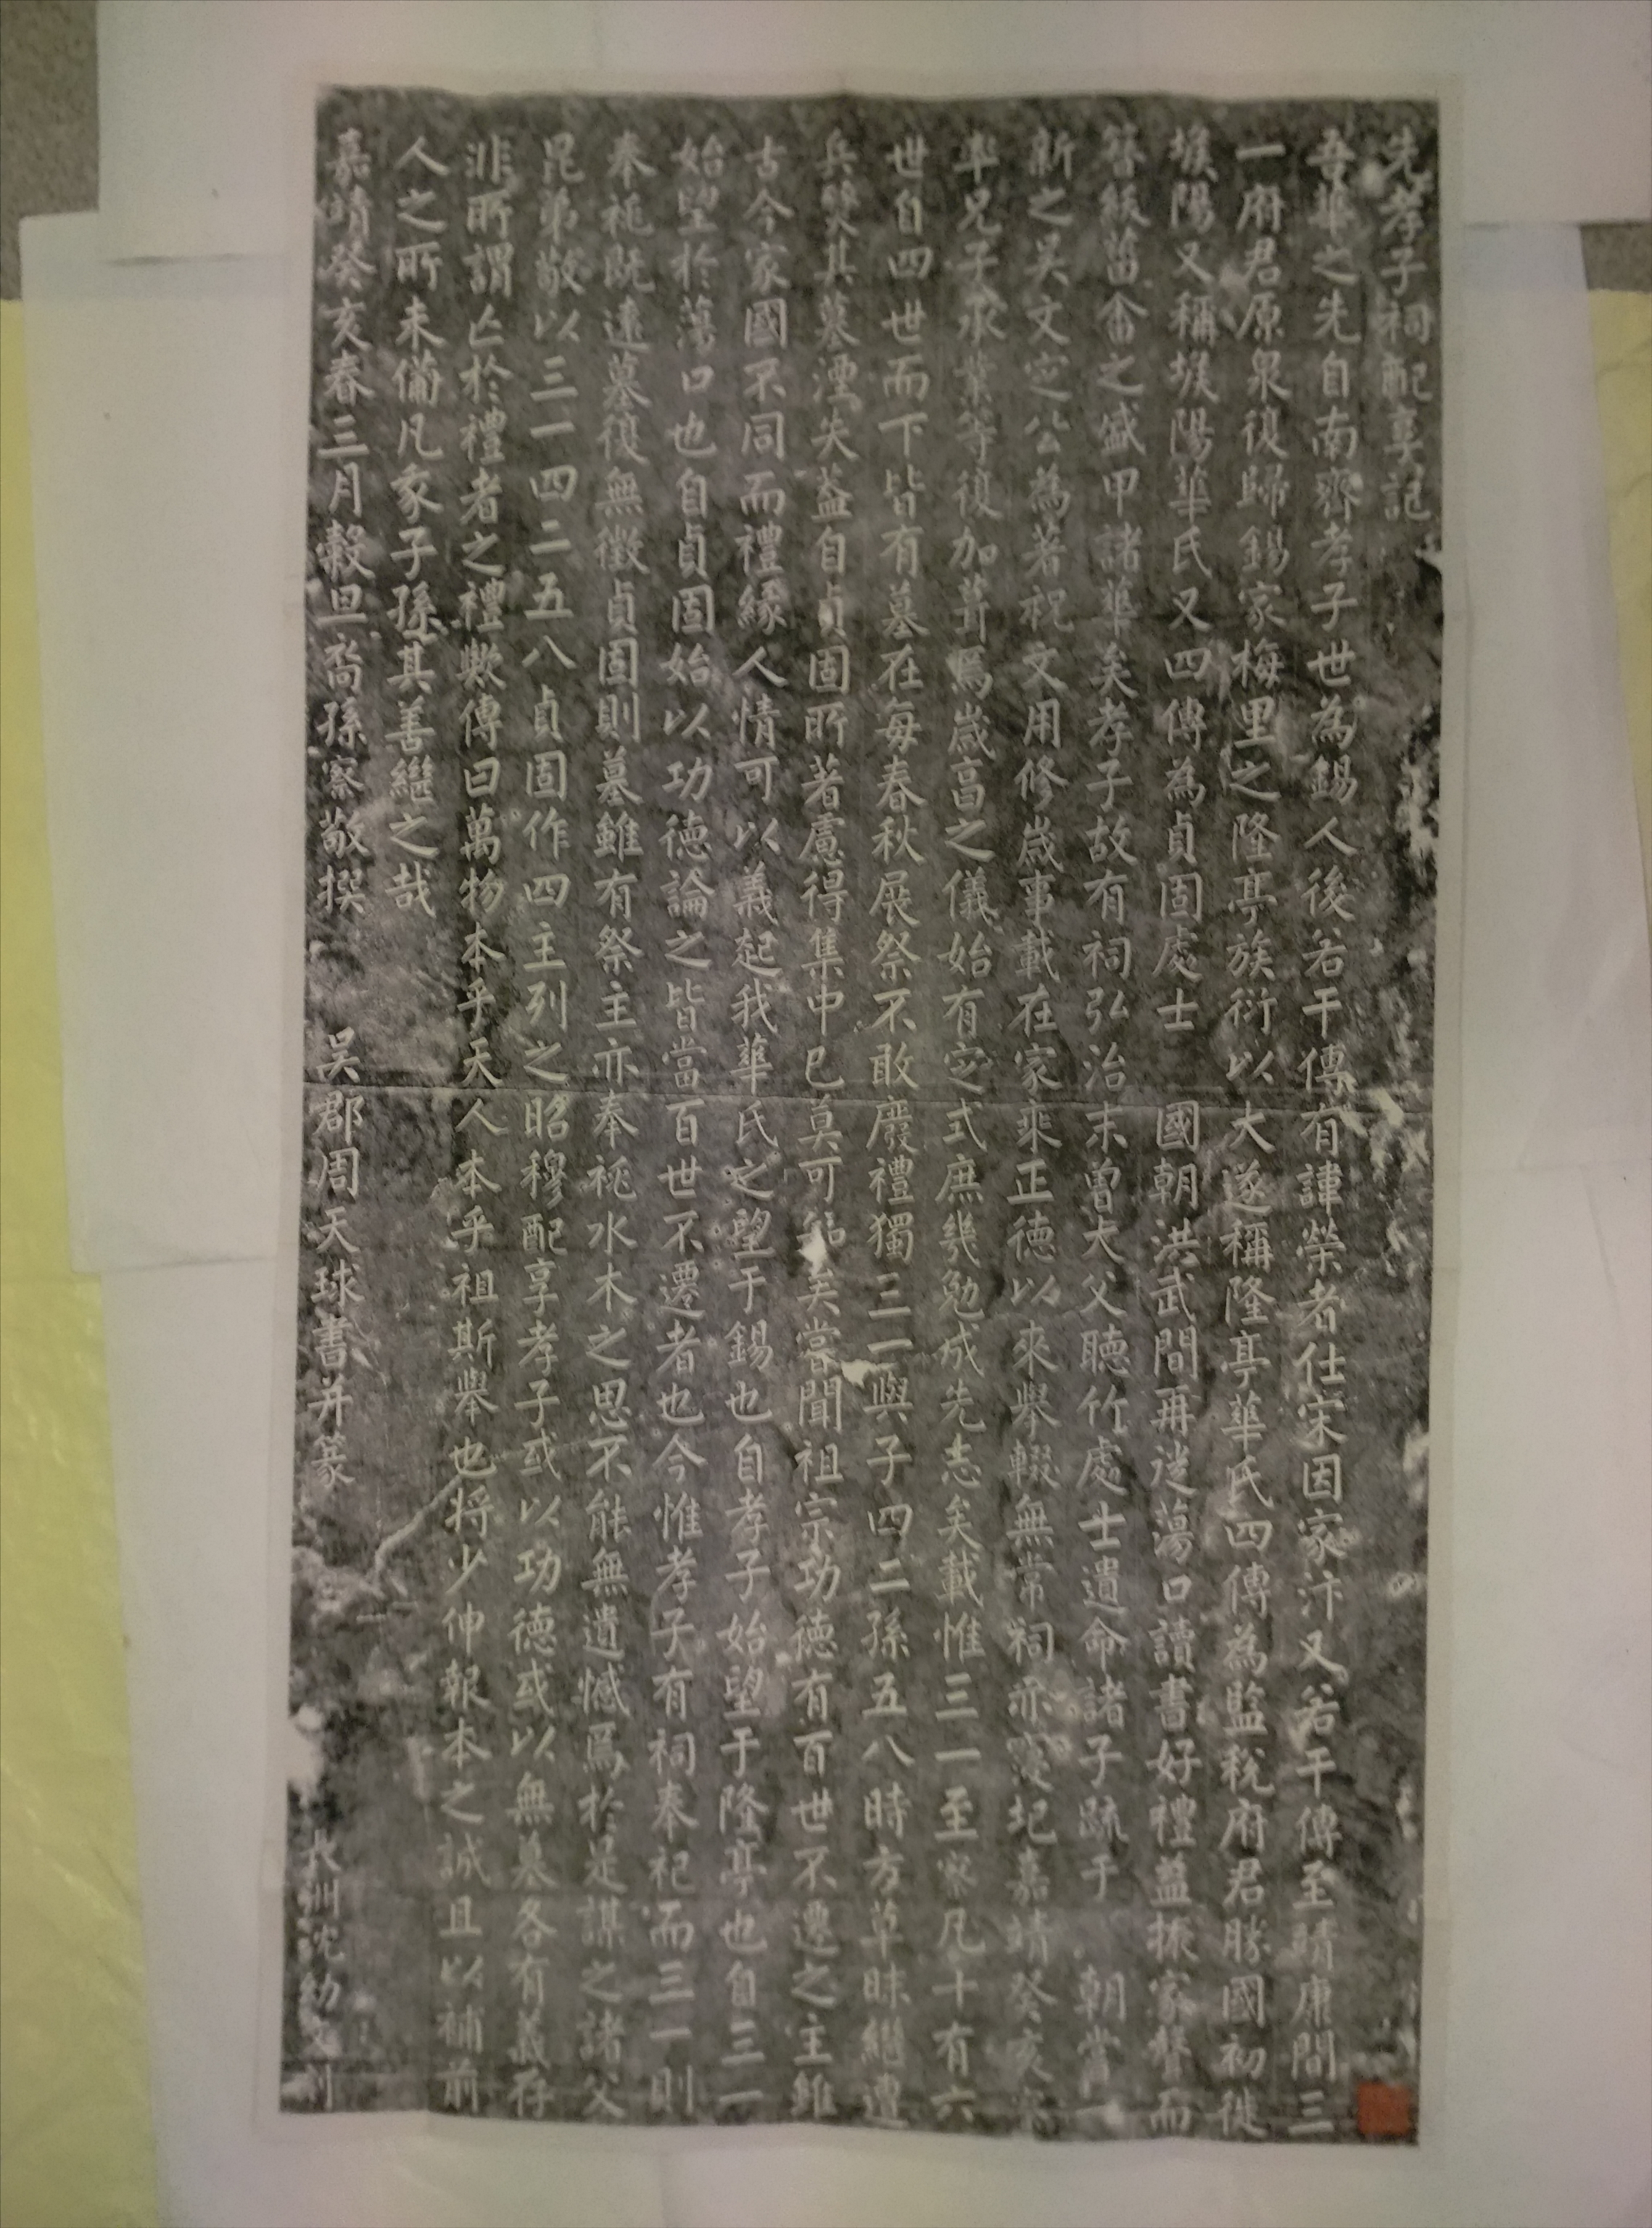 先孝子祠配享記
吾華之先自南齊孝子世為錫人後若干傳有諱榮者仕宋因家汴又若干傳至靖康間三
一府君原泉復歸錫家梅里之隆亭族衍以大遂稱隆亭華氏四傳為監稅府君勝國初徙
堠陽又稱堠陽華氏又四傳為貞固處士 國朝洪武間再迻蕩口讀書好禮益振家聲而
簪紱菑畬之盛甲諸華矣孝子故有祠弘治末曾大父聽竹處士遺命諸子疏于 朝嘗一
新之吳文定公為著祝文用修歲事載在家乘正德以來舉輟無常祠亦寖圮嘉靖癸亥察
率兄子承業等復加葺焉歲亯之儀始有定式庶幾勉成先志矣載惟三一至察凡十有六
世自四世而下皆有墓在每春秋展祭不敢廢禮獨三一與子四二孫五八時方草昧繼遭
兵燹其墓湮失葢自貞固所著慮得集中已莫可 矣嘗聞祖宗功德有百世不遷之主雖
古今家國不同而禮緣人情可以義起我華氏之望于錫也自孝子始望于隆亭也自三一
始望於蕩口也自貞固始以功德論之皆當百世不遷者也今惟孝子有祠奉祀而三一則
奉祧既遠墓復無徵貞固則墓雖有祭主亦奉祧水木之思不能無遺憾焉於是謀之諸父
昆弟敬以三一四二五八貞固作四主列之昭穆配享孝子或以功德或以無墓各有義存
非所謂亡於禮者之禮歟傳曰萬物本乎天人本乎祖斯舉也將少伸報本之誠且以補前
人之所未備凡象子孫其善繼之哉
嘉靖癸亥春三月穀旦裔孫察敬撰 吳郡周天球書并篆 長洲沈幼文刊